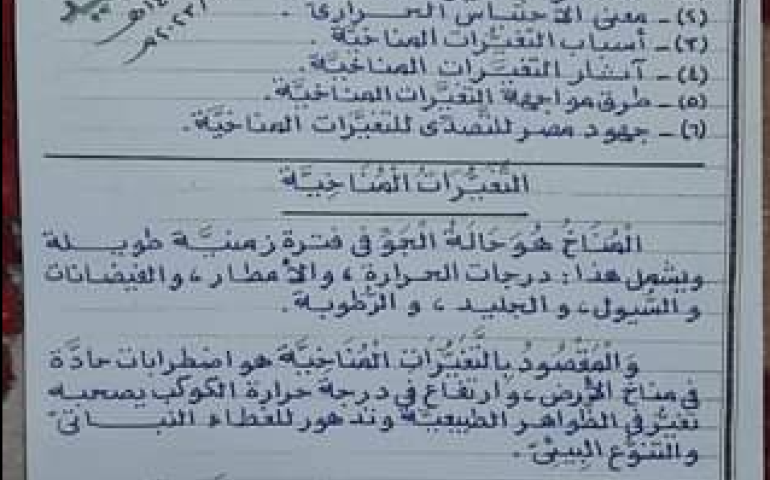 (٢) - معنى الاحتباس الحرارى .
(٣) - أسباب التغيرات المناخيَّة .
(٤) - آثار التغيَّرات المناخيَّة .
(٥) - طرق مواجهة التغيرات المناخيَّة .
(٦) - جهود مصر للتَّصدِّى للتغيَّرات المناخيَّة .
التَّغَيُّرَاتُ الْمُنَاخِيَّةُ
الْمُنَاخُ هُوَ حَالَةُ الْجَوِّ فى فترة زمنيَّة طويلة
ويشمل هذا : درجات الحرارة ، والأمطار ، والفيضانات
والسُّيول ، والجليد ، والرُّطوبة .
وَالْمَقْصُودُ بِالتَّغَيُّرَاتِ الْمُنَاخِيَّةِ هو اضطرابات حادَّة
فى مناخ الأرض ، وارتفاع فى درجة حرارة الكوكب يصحبه
تغيُّر فى الظواهر الطبيعيَّة وتدهور للغطاء النباتىّ
والتنوُّع البيئىّ .